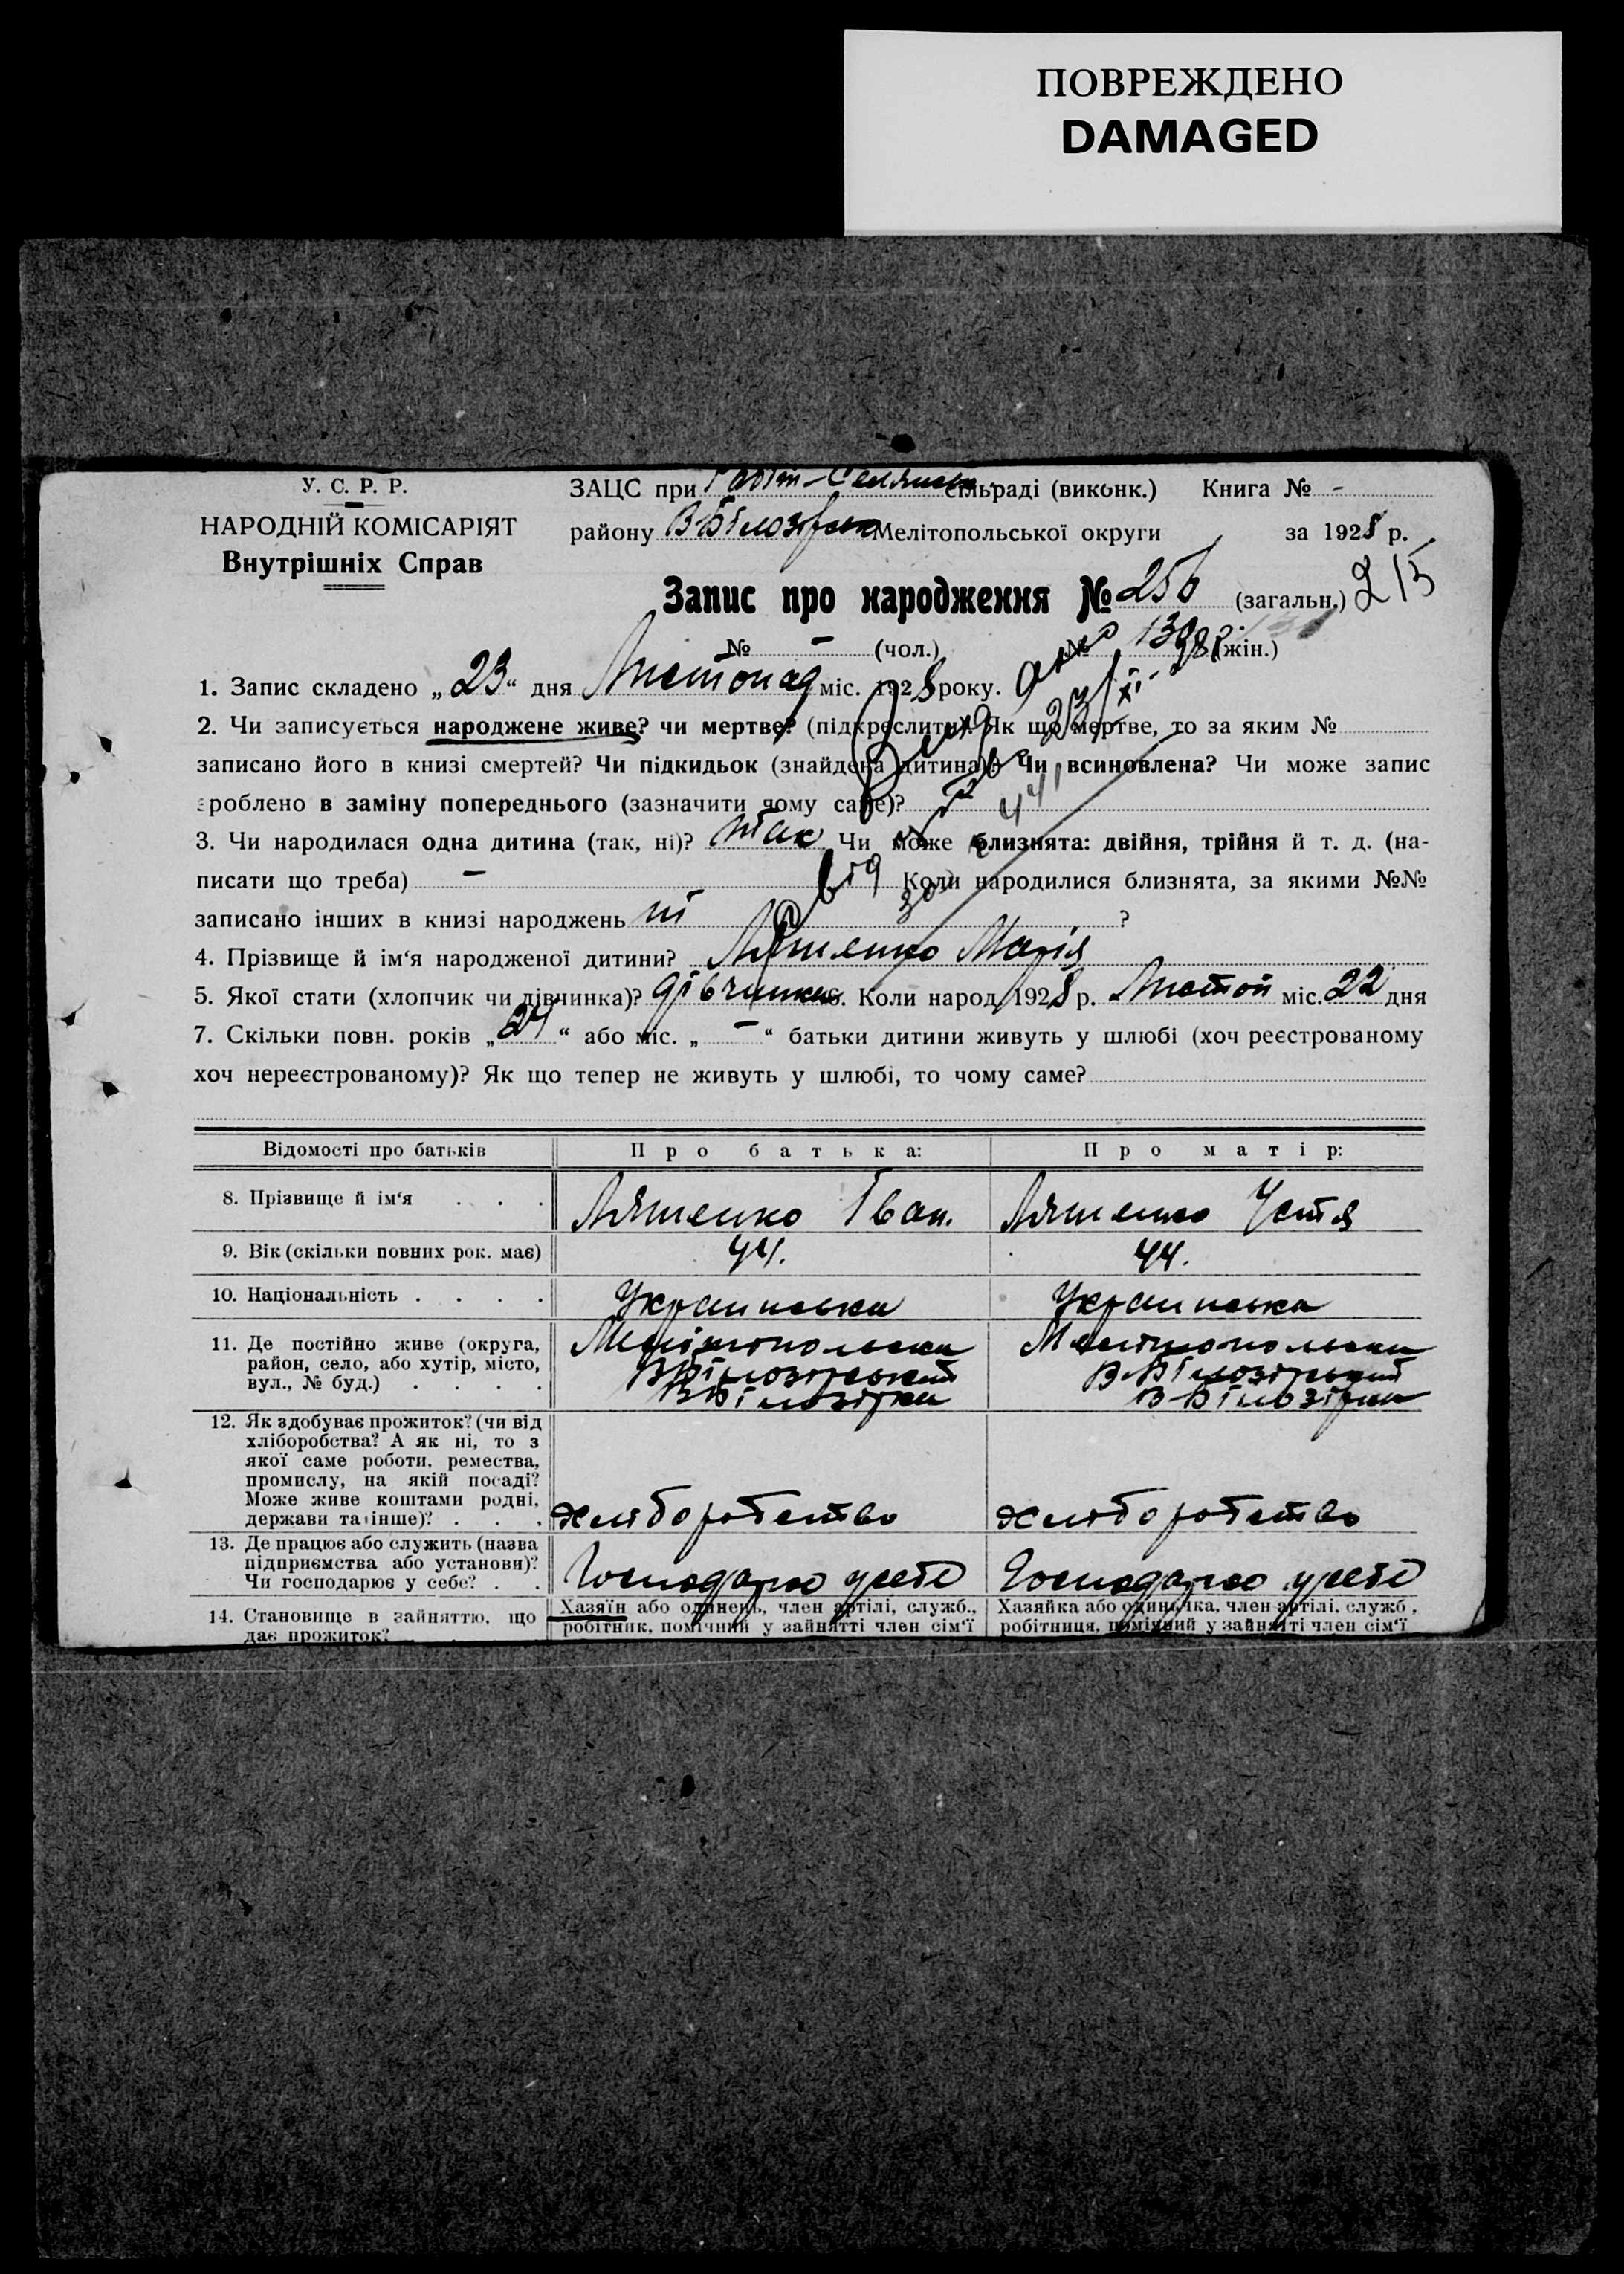 ПОВРЕЖДЕНО
DAMAGED
У. С. Р. Р.
НАРОДНІЙ КОМІСАРІЯТ
Внутрішніх Справ
ЗАЦС при Робіт-Селянськ. сільраді (виконк.) Книга № -
району В-Білозірськ Мелітопольської округи за 1928 р.
Запис про народження № 256 (загальн.) 215
№ - (чол.) № 139 (жін.)
1. Запис складено „23“ дня Листопад міс. 1928 року.
2. Чи записується народжене живе? чи мертве? (підкреслити). Як що мертве, то за яким №
записано його в книзі смертей? Чи підкидьок (знайдена дитина)? Чи всиновлена? Чи може запис
зроблено в заміну попереднього (зазначити чому саме)?
3. Чи народилася одна дитина (так, ні)? так Чи може близнята: двійня, трійня й т. д. (на-
писати що треба) - Коли народилися близнята, за якими №№
записано інших в книзі народжень ?
4. Прізвище й ім‘я народженої дитини? Ляшенко Марія
5. Якої стати (хлопчик чи дівчинка)? дівчинка 6. Коли народ. 1928 р. Листоп міс. 22 дня
7. Скільки повн. років „24“ або міс. „-“ батьки дитини живуть у шлюбі (хоч реєстрованому
хоч нереєстрованому)? Як що тепер не живуть у шлюбі, то чому саме?
Відомості про батьків Про батька: Про матір:
8. Прізвище й ім‘я Ляшенко Іван. Ляшенко Устя
9. Вік (скільки повних рок. має) 44. 44.
10. Національність Украинська Украинська
11. Де постійно живе (округа, район, село, або хутір, місто, вул., № буд.)
Мелітопольська Мелітопольська
В-Білозірський В-Білозірський
В-Білозірка В-Білозірка
12. Як здобуває прожиток? (чи від
хліборобства? А як ні, то з
якої саме роботи, ремества,
промислу, на якій посаді?
Може живе коштами родні,
держави та інше)? хліборобство хліборобство
13. Де працює або служить (назва
підприємства або установи)?
Чи господарює у себе? Господарює у себе Господарює у себе
14. Становище в зайняттю, що
дає прожиток?
Хазяїн або одинець, член артілі, служб.,
робітник, помічний у зайнятті член сім‘ї
Хазяйка або одиначка, член артілі, служб.,
робітниця, помічний у зайнятті член сім‘ї